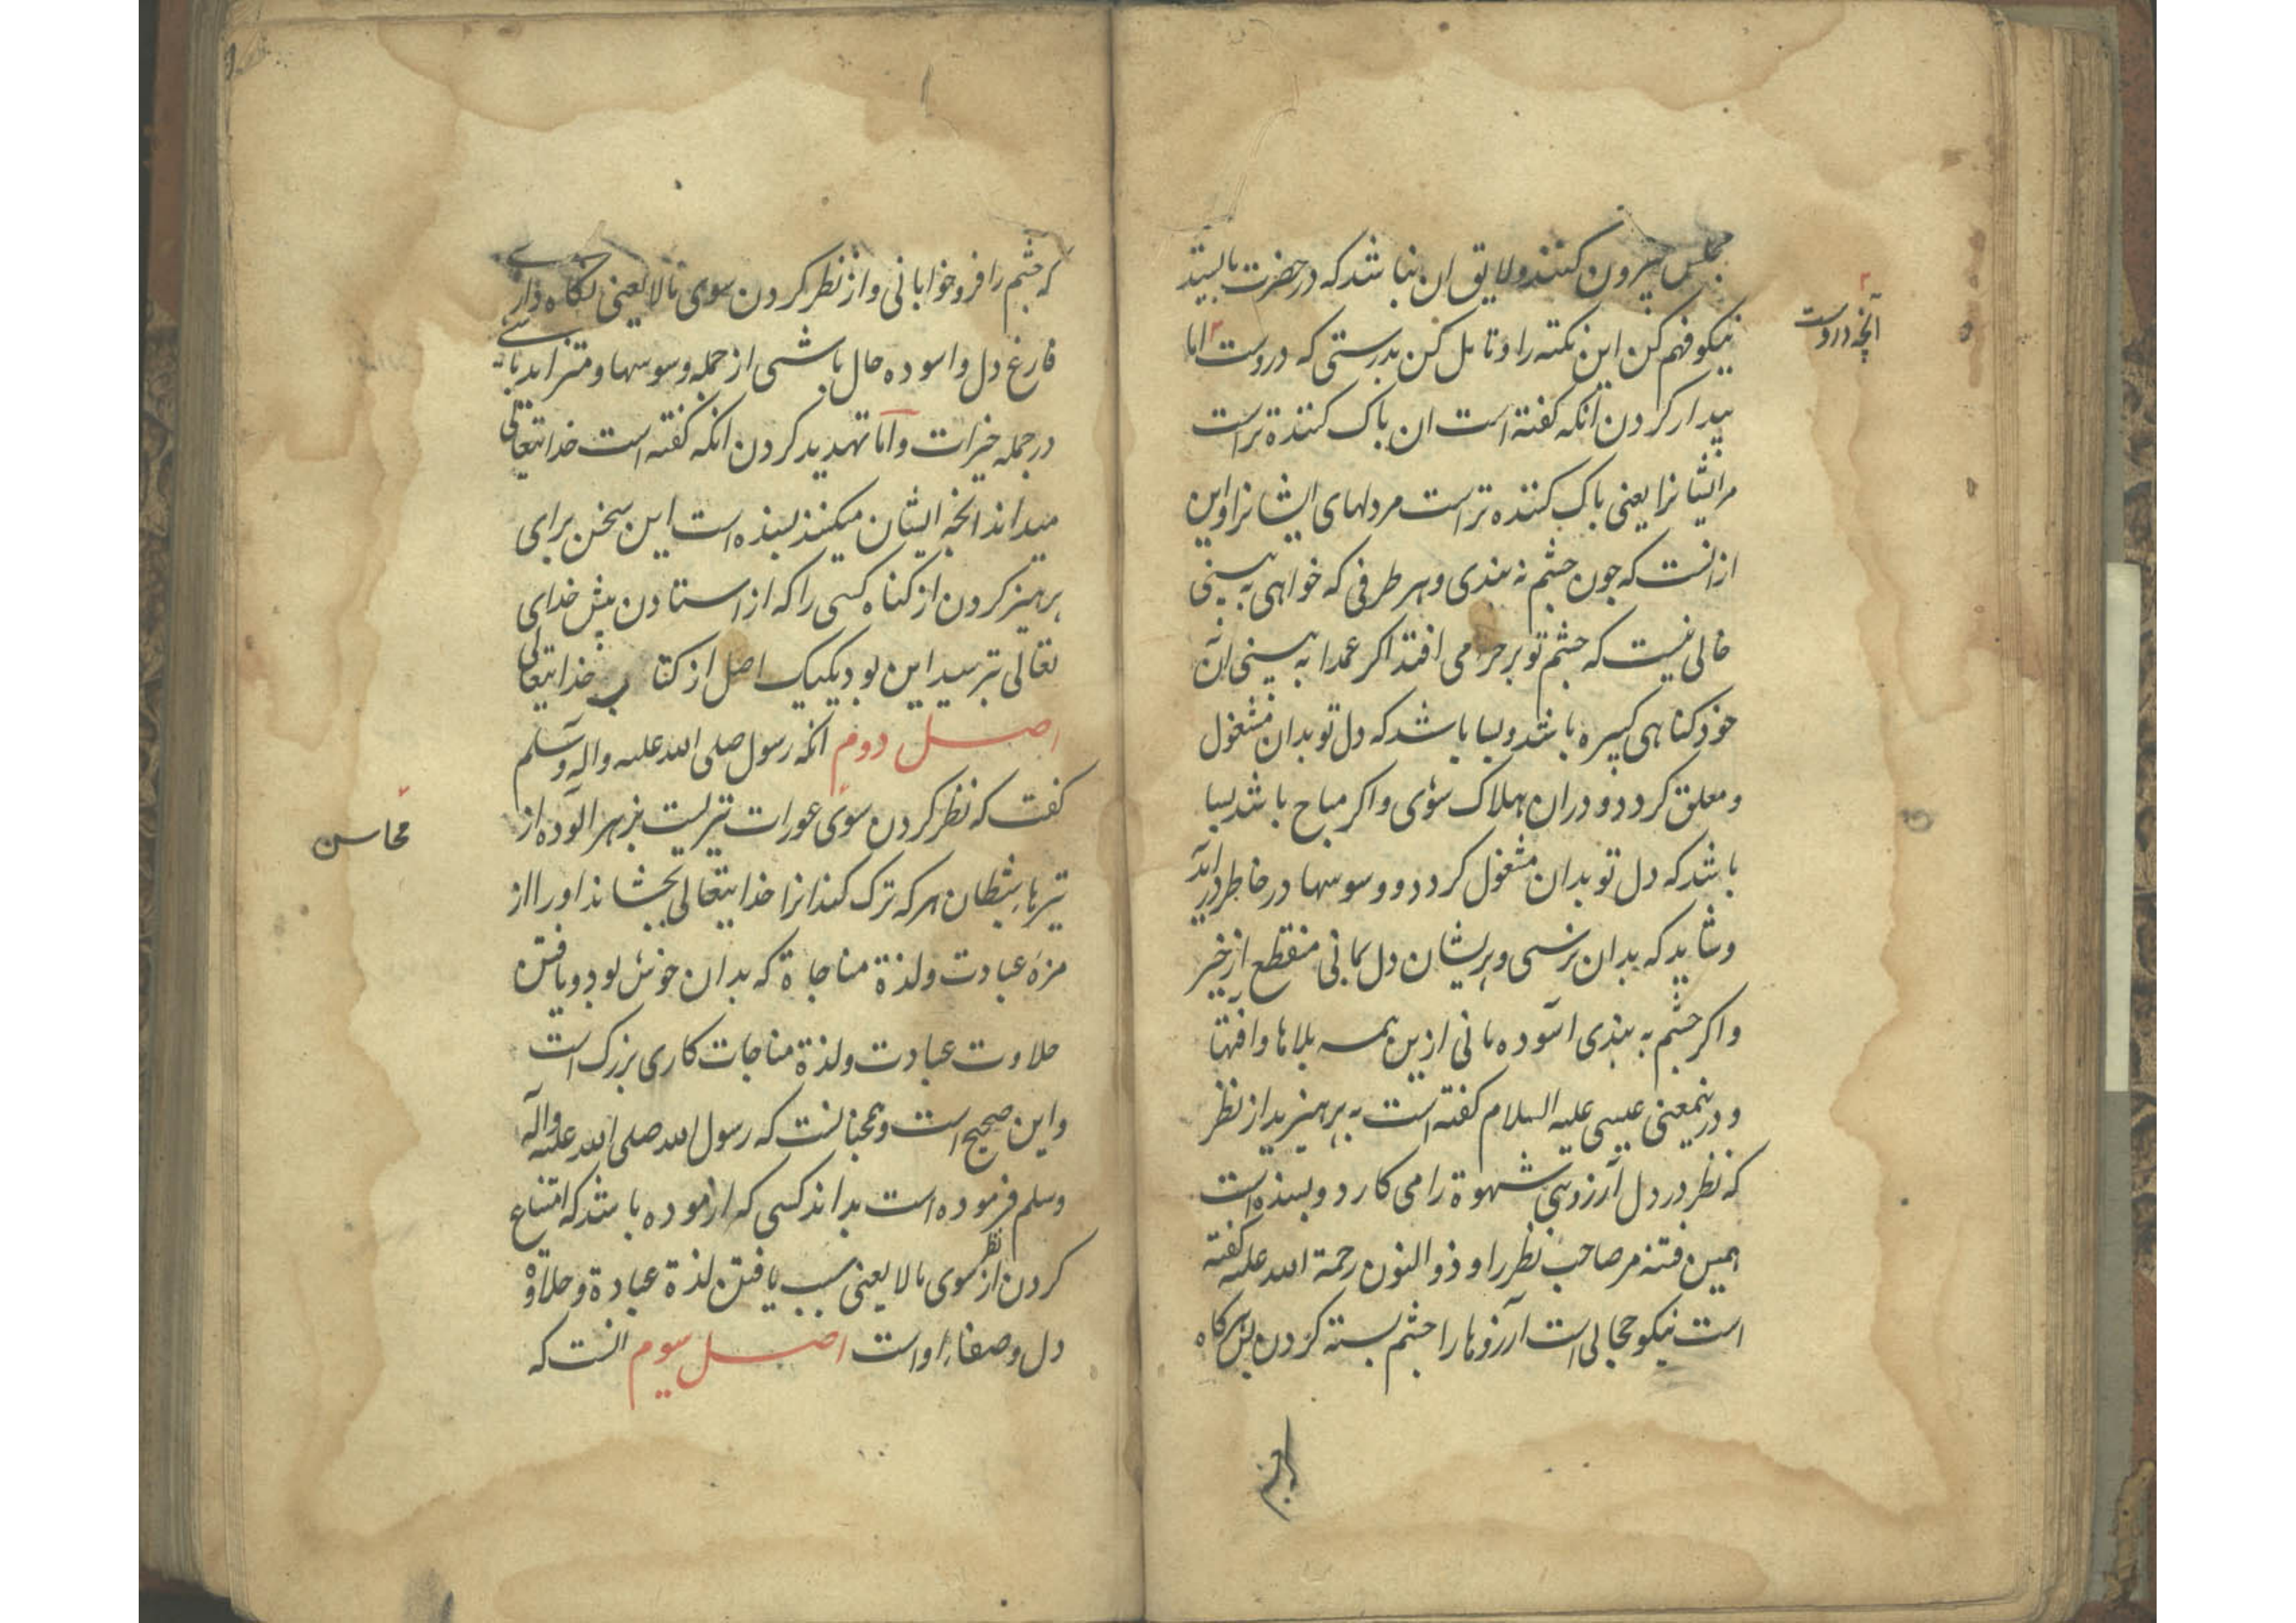 مجلس بیرون کنند و لایق ان نباشد که در حضرت بایستد
نیکو فهم کن این نکته را و تامل کن بدرستی که دروست اما
آنچه دروست
بیدار کردن انکه کفته است ان باک کننده تر است
مر ایشانرا یعنی باک کننده تر است مر دلهای ایشانرا و این
از انست که جون جشم نه بندی و هر طرفی که خواهی به بینی
خالی نیست که جشم تو بر حرامی افتد اکر عمدا به بینی ان
خود کناهی کبیره باشد و بسا باشد که دل تو بدان مشغول
و معلق کردد و دران هلاک شوی و اکر مباح باشد بسا
باشد که دل تو بدان مشغول کردد و وسوسها در خاطر در اید
و شاید که بدان نرسی و پریشان دل بمانی منقطع از خیر
و اکر جشم به بندی اسوده مانی ازین همه بلاها و افتها
و درینمعنی عیسی علیه السلام کفته است به پرهیزید از نظر
که نظر در دل آرزوی شهوة را می کارد و بسنده است
همین فتنه مر صاحب نظر را و ذوالنون رحمة الله علیه کفته
است نیکو حجابی است آرزوها را جشم بسته کردن پس هرکاه
که جشم را فرو خوابانی و از نظر کردن سوی مالا یعنی نکاه داری
فارغ دل و اسوده حال باشی از جمله وسوسها و متزاید باشی
در جمله خیرات و اما تهدید کردن انکه کفته است خدایتعالی
میداند انچه ایشان میکنند بسنده است این سخن برای
پرهیز کردن از کناه کسی را که از استادن پیش خدای
تعالی بترسد این بود یکیک اصل از کتاب خدایتعالی
اصل دوم انکه رسول صلی الله علیه واله وسلم
کفت که نظر کردن سوی عورات تیریست بزهر الوده از
محاسن
تیرهاء شیطان هر که ترک کند انرا خدایتعالی بچشاند او را از
مزه عبادت و لذة مناجاة که بدان خوش بود و یافتن
حلاوت عبادت و لذة مناجات کاری بزرک است
و این صحیح است و همچنانست که رسول الله صلی الله علیه واله
وسلم فرموده است بداند کسی که ازموده باشد که امتناع
کردن از نظر سوی مالا یعنی سبب یافتن لذة عبادة و حلاوة
دل و صفاء او است اصل سوم انست که